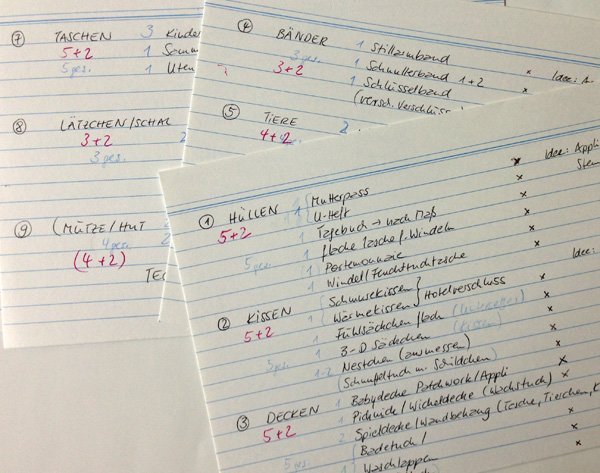 ⑦ TASCHEN 3 Kinder
5+2 1 Somm
5 ges. 1 Uten
⑧ LÄTZCHEN/SCHAL
3+2 2
3 ges.
⑨ (MÜTZE/HUT
4 ges. 2
(4+2)
④ BÄNDER 1 Stillarmband
3 ges. 1 Schnullerband 1+2 x Idee: A
3+2 1 Schlüsselband x
(versch. Verschlüss
⑤ TIERE 2
4+2
① HÜLLEN 1 Mutterpass x Idee: Appli
5+2 U-Heft x
1 Tagebuch → nach Maß x
5 ges. 1 flache Tasche f. Windeln x
1 Portemonnaie x
1 Windel/Feuchttuchtasche
② KISSEN Schmusekissen
5+2 1 Wärmekissen } Hotelverschluss x Idee:
1 Fühlsäckchen
5 ges. 1 3-D Säckchen (Kissen) x
1-2 Nestchen (ausmessen) x
(Schnuffeltuch m. Schildchen) x
③ DECKEN 1 Babydecke Patchwork/Appli x
5+2 1 Picknick/Wickeldecke (Wachstuch) x
2 Spieldecke/Wandbehang (Tasche, Tierchen, K
5 ges. Badetuch/ x
1 Waschlappen x